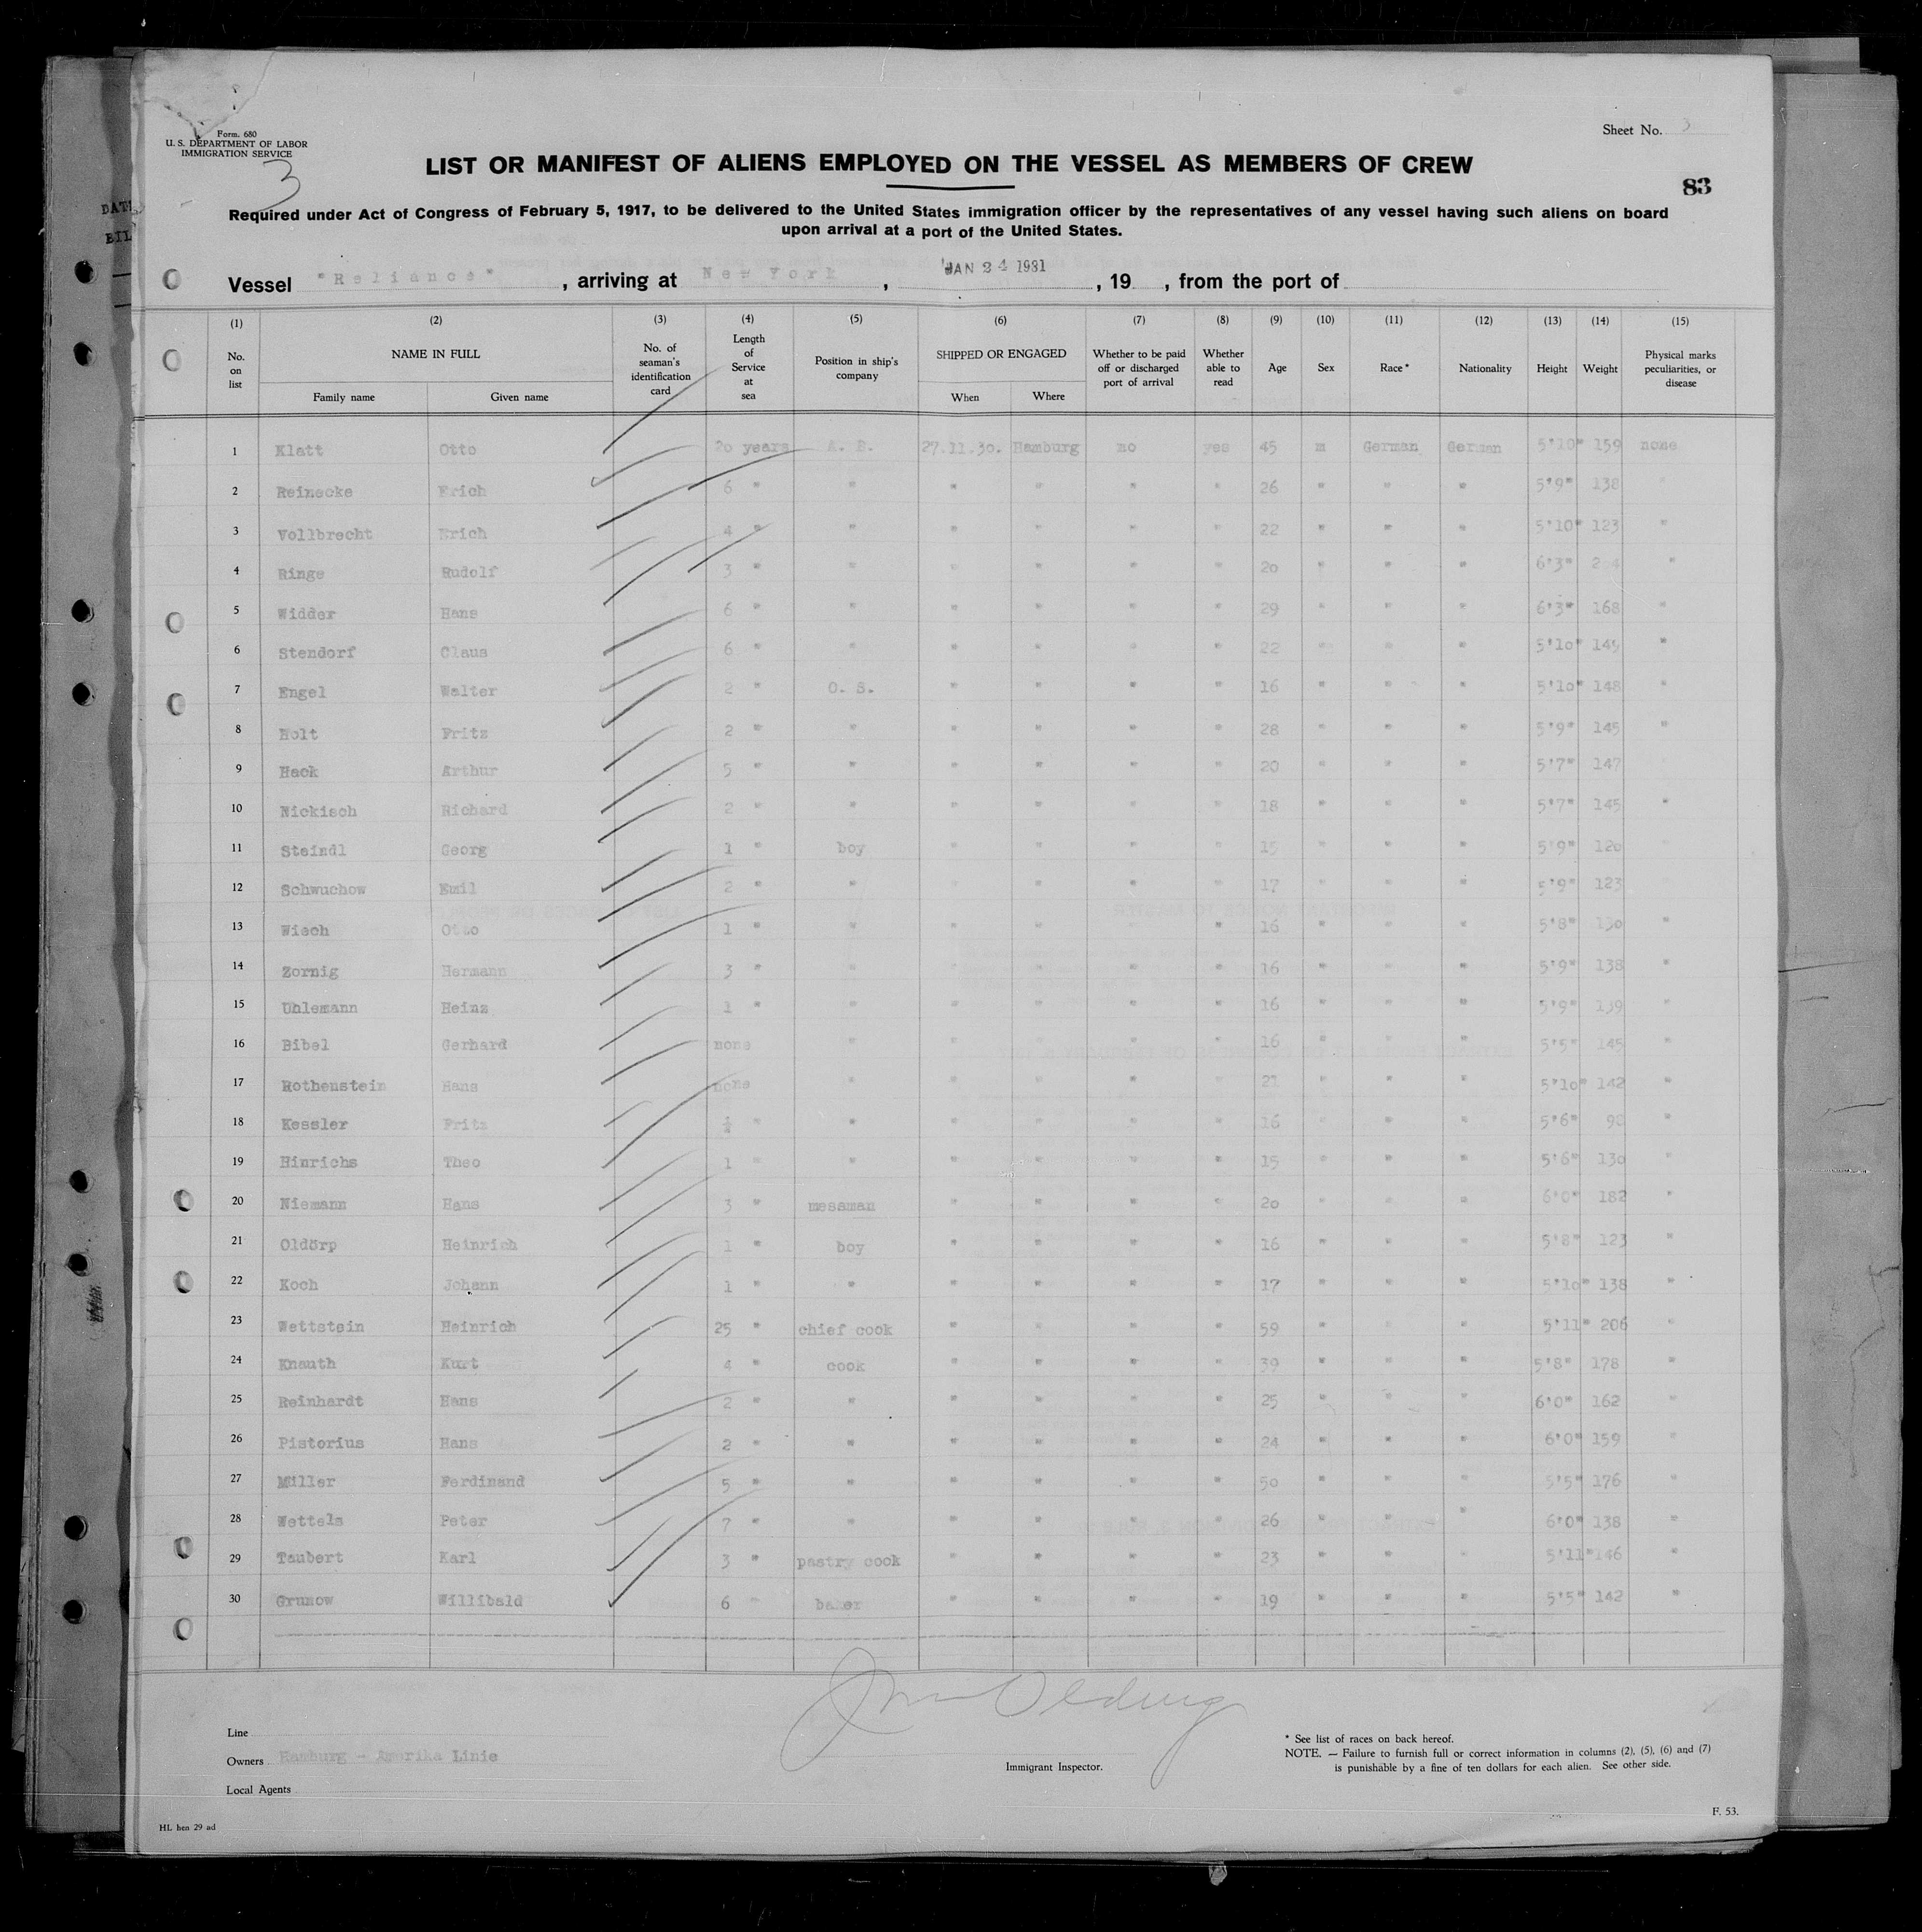 Form. 680
U. S. DEPARTMENT OF LABOR
IMMIGRATION SERVICE
3
Sheet No. 3
LIST OR MANIFEST OF ALIENS EMPLOYED ON THE VESSEL AS MEMBERS OF CREW
83
Required under Act of Congress of February 5, 1917, to be delivered to the United States immigration officer by the representatives of any vessel having such aliens on board
upon arrival at a port of the United States.
Vessel "Reliance", arriving at New York, JAN 24 1931, 19 , from the port of
(1) (2) (3) (4) (5) (6) (7) (8) (9) (10) (11) (12) (13) (14) (15)
No. on list NAME IN FULL Family name Given name No. of seaman's identification card Length of Service at sea Position in ship's company SHIPPED OR ENGAGED When Where Whether to be paid off or discharged port of arrival Whether able to read Age Sex Race* Nationality Height Weight Physical marks peculiarities, or disease
1 Klatt Otto 20 years A. B. 27.11.30. Hamburg no yes 45 m German German 5'10" 159 none
2 Reinecke Erich 6 " " " " " " 26 " " " 5'9" 138 "
3 Vollbrecht Erich 4 " " " " " " 22 " " " 5'10" 123 "
4 Ringe Rudolf 3 " " " " " " 20 " " " 6'3" "
5 Widder Hans 6 " " " " " " 29 " " " 6'3" 168 "
6 Stendorf Claus 6 " " " " " " 22 " " " 5'10" 149 "
7 Engel Walter 2 " O. S. " " " " 16 " " " 5'10" 148 "
8 Holt Fritz 2 " " " " " " 28 " " " 5'9" 145 "
9 Hack Arthur 5 " " " " " " 20 " " " 5'7" 147
10 Nickisch Richard 2 " " " " " " 18 " " " 5'7" 145 "
11 Steindl Georg 1 " boy " " " " 15 " " " 5'9" 120
12 Schwuchow Emil 2 " " " " " " 17 " " " 5'9" 123
13 Wisch Otto 1 " " " " " 16 " " " 5'8" 130 "
14 Zornig Hermann 3 " " " " " " 16 " " " 5'9" 138 "
15 Uhlemann Heinz 1 " " " " " " 16 " " " 5'9" 139 "
16 Bibel Gerhard none " " " " " 16 " " " 5'5" 145 "
17 Rothenstein Hans none " " " " " 21 " " " 5'10" 142 "
18 Kessler Fritz " " " " " " 16 " " " 5'6" 98 "
19 Hinrichs Theo 1 " " " " " " 15 " " " 5'6" 130 "
20 Niemann Hans 3 " messman " " " " 20 " " " 6'0" 182 "
21 Oldörp Heinrich 1 " boy " " " " 16 " " " 5'8" 123 "
22 Koch Johann 1 " " " " " " 17 " " " 5'10" 138 "
23 Wettstein Heinrich 25 " chief cook " " " " 59 " " " 5'11" 206 "
24 Knauth Kurt 4 " cook " " " " 39 " " " 5'8" 178 "
25 Reinhardt Hans 2 " " " " " " 25 " " " 6'0" 162 "
26 Pistorius Hans 2 " " " " " " 24 " " " 6'0" 159 "
27 Miller Ferdinand 5 " " " " " " 50 " " " 5'5" 176 "
28 Wettels Peter 7 " " " " " " 26 " " " 6'0" 138 "
29 Taubert Karl 3 " pastry cook " " " " 23 " " " 5'11" 146 "
30 Grunow Willibald 6 " baker " " " " 19 " " " 5'5" 142 "
Line
Owners Hamburg - Amerika Linie
Local Agents
Immigrant Inspector.
* See list of races on back hereof.
NOTE. — Failure to furnish full or correct information in columns (2), (5), (6) and (7)
is punishable by a fine of ten dollars for each alien. See other side.
HL hen 29 ad
F. 53.